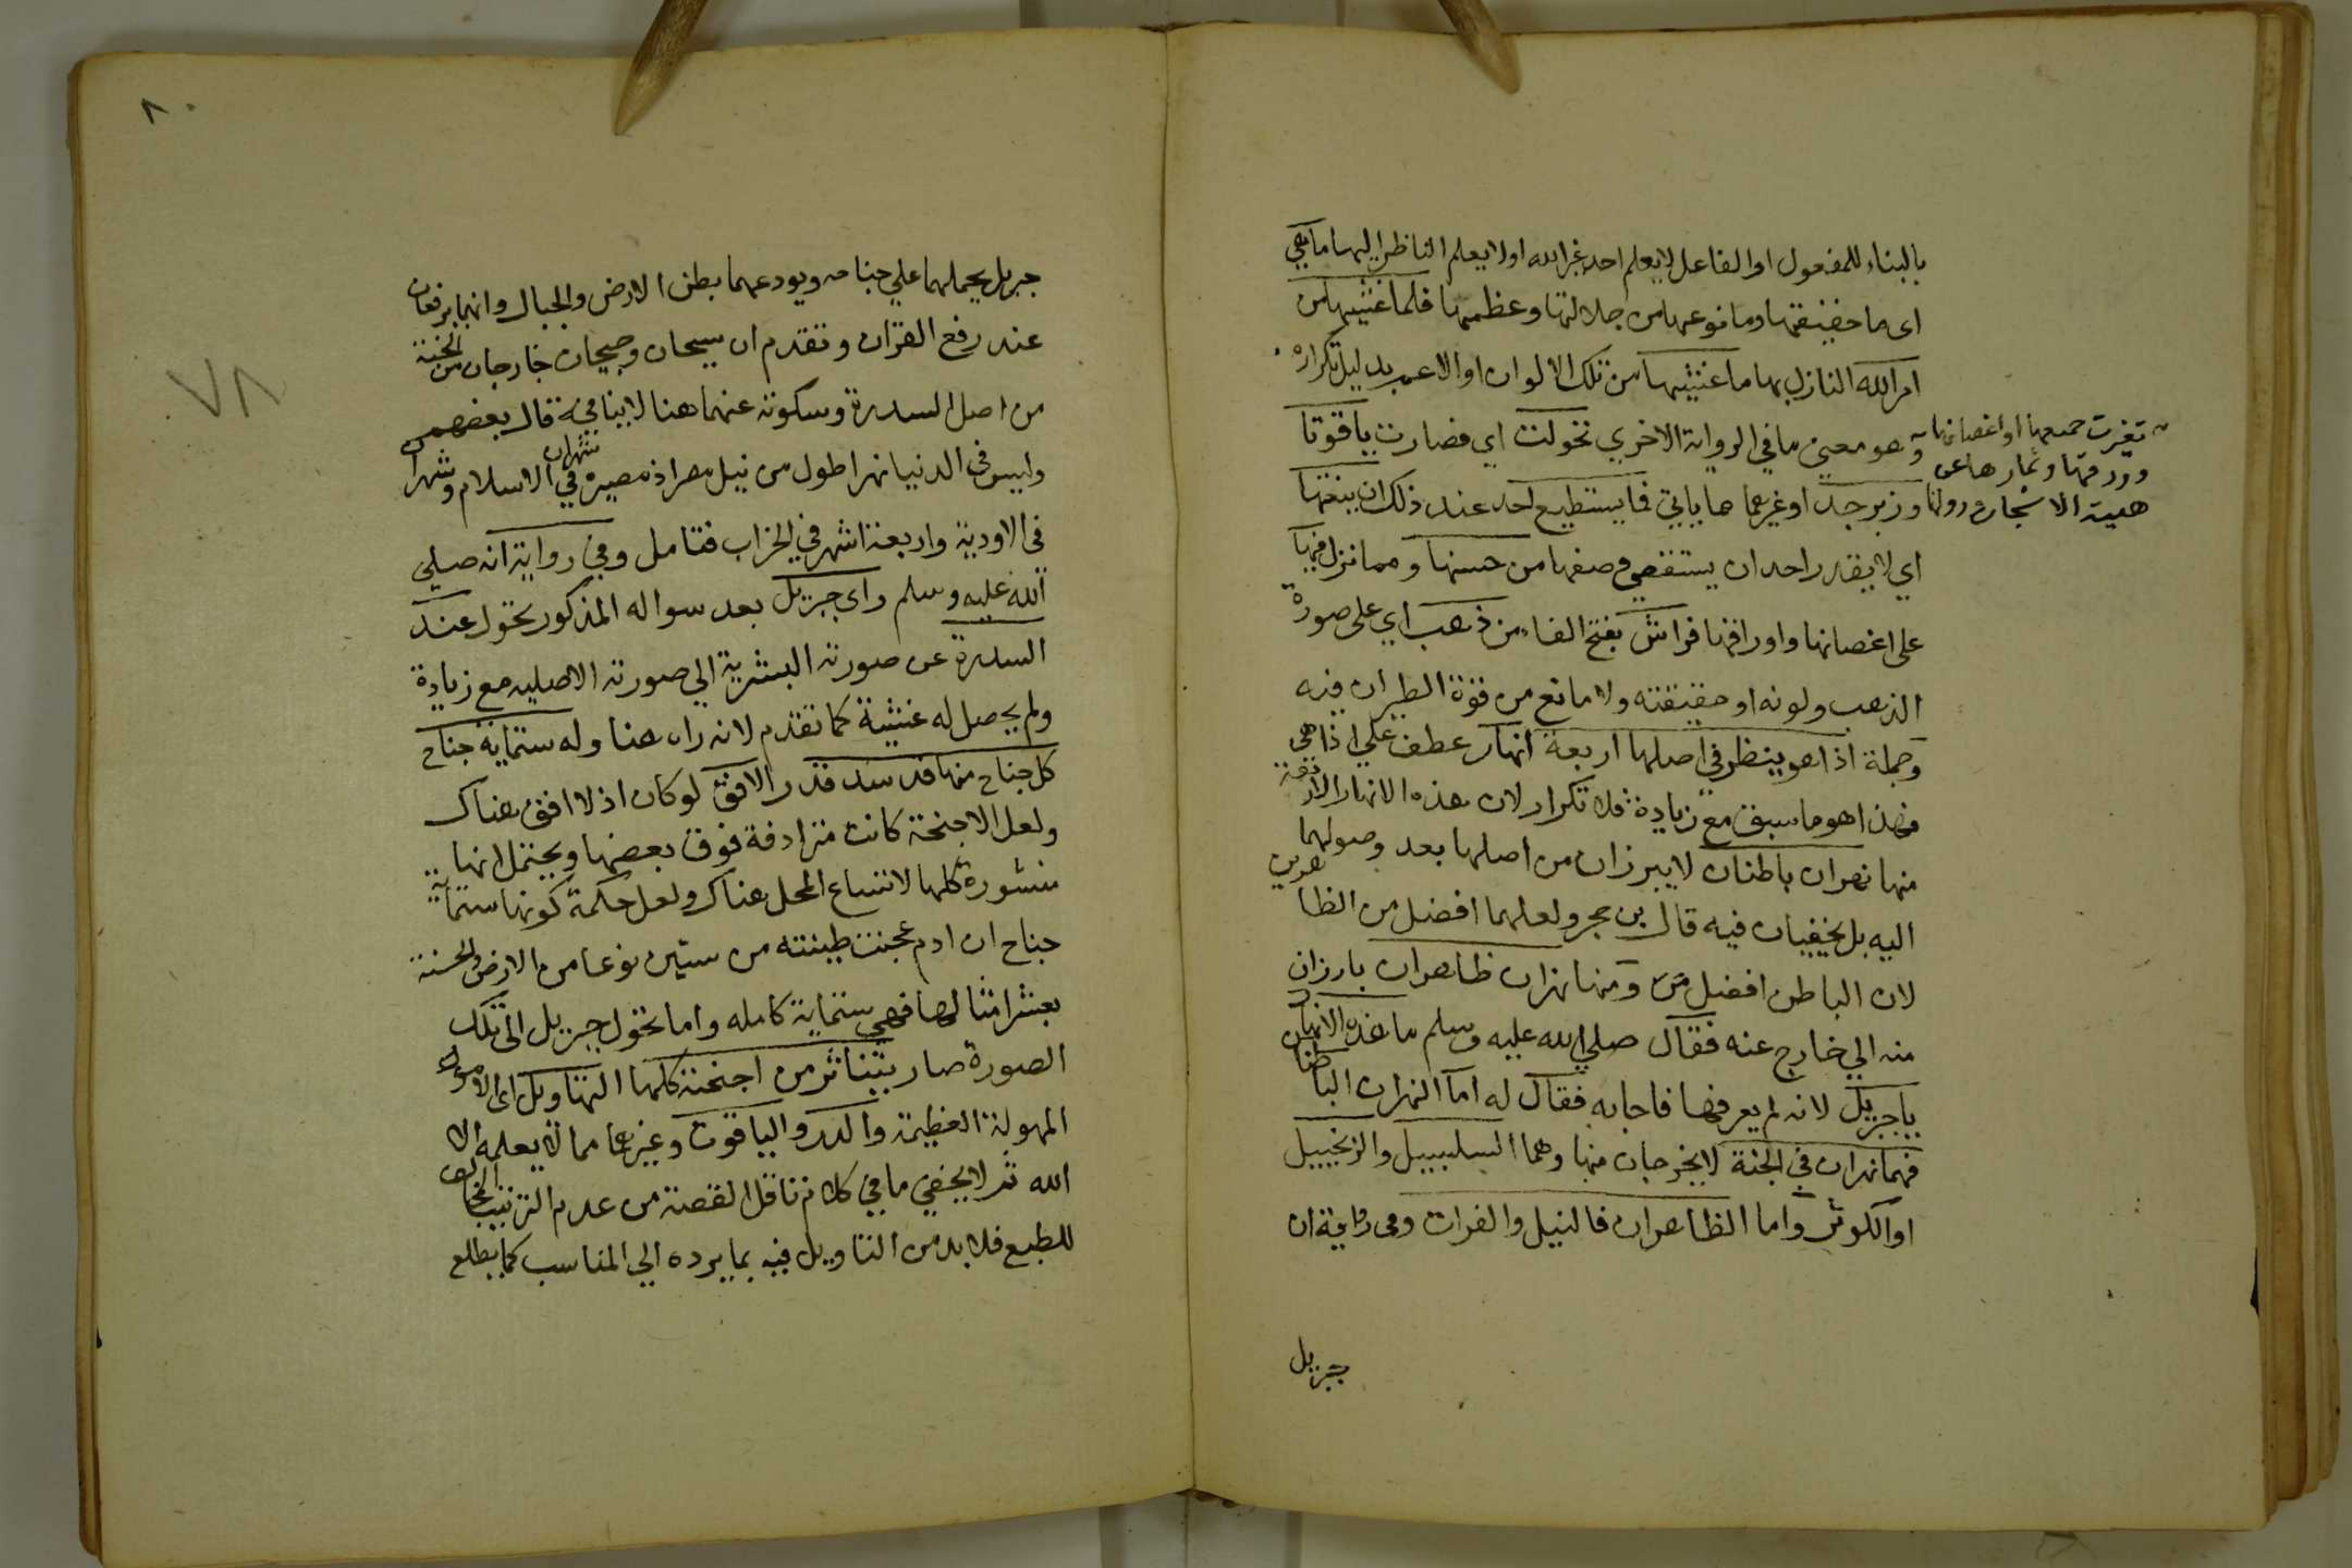 بالبناء للمفعول او الفاعل لا يعلم احد غير الله او لا يعلم الناظر اليها ما هي
اي ما حقيقتها وما نوعها من جلالتها وعظمها فلما غشيها من
امر الله النازل بها ما غشيها من تلك الالوان او الاعم بدليل تكراره
تغيرت جميعها او اغصانها
وورقها وثمارها عن
هيئة الاشجار
وهو معنى ما في الرواية الاخري تحولت اي فصارت ياقوتا
وزبرجد او غيرهما مما ياتي فما يستطيع احد عند ذلك ان ينعتها
اي لا يقدر احد ان يستقصي وصفها من حسنها ومما نزل فيها
على اغصانها واوراقها فراش بفتح الفاء من ذهب اي على صورة
الذهب ولونه او حقيقته ولا مانع من قوة الطيران فيه
وجملة اذا هو ينظر في اصلها اربعة انهار عطف على اذا هي
فهذا هو ما سبق مع زيادة فلا تكرار لان هذه الانهار الاربعة
منها نهران باطنان لا يبرزان من اصلها بعد وصولهما
اليه بل يخفيان فيه قال بن حجر ولعلهما افضل من الظاهرين
لان الباطن افضل ومنها نهران ظاهران بارزان
منه الي خارج عنه فقال صلي الله عليه وسلم ما هذه الانهار
يا جبريل لانه لم يعرفها فاجابه فقال له اما النهران الباطنان
فهما نهران في الجنة لا يخرجان منها وهما السلسبيل والزنجبيل
او الكوثر واما الظاهران فالنيل والفرات وفي رواية ان
جبريل
٨٠
٧٨
جبريل يحملهما علي جناحه ويودعهما بطن الارض والجبال وانهما يرفعان
عند رفع القران وتقدم ان سيحان وجيحان خارجان من الجنة
من اصل السدرة وسكوته عنهما هنا لا ينافيه قال بعضهم
وليس في الدنيا نهر اطول من نيل مصر اذ مسيره شهران في الاسلام وشهران
في الاودية واربعة اشهر في الخراب فتامل وفي رواية انه صلي
الله عليه وسلم راى جبريل بعد سواله المذكور تحول عند
السدرة عن صورته البشرية الي صورته الاصليه مع زيادة
ولم يحصل له غشية كما تقدم لانه راه هنا وله ستماية جناح
كل جناح منها قد سد قدر الافق لو كان اذ لا افق هناك
ولعل الاجنحة كانت مترادفة فوق بعضها ويحتمل انها
منشورة كلها لاتساع المحل هناك ولعل حكمة كونها ستماية
جناح ان ادم عجنت طينته من ستين نوعا من الارض والحسنة
بعشر امثالها فهي ستماية كامله واما تحول جبريل الى تلك
الصورة صار يتناثر من اجنحته كلها التهاويل اي الامور
المهولة العظيمة والدر والياقوت وغيرها مما لا يعلمه الا
الله ثم لا يخفي ما في كلام ناقل القصة من عدم الترتيب المخالف
للطبع فلا بد من التاويل فيه بما يرده الي المناسب كما يطلع